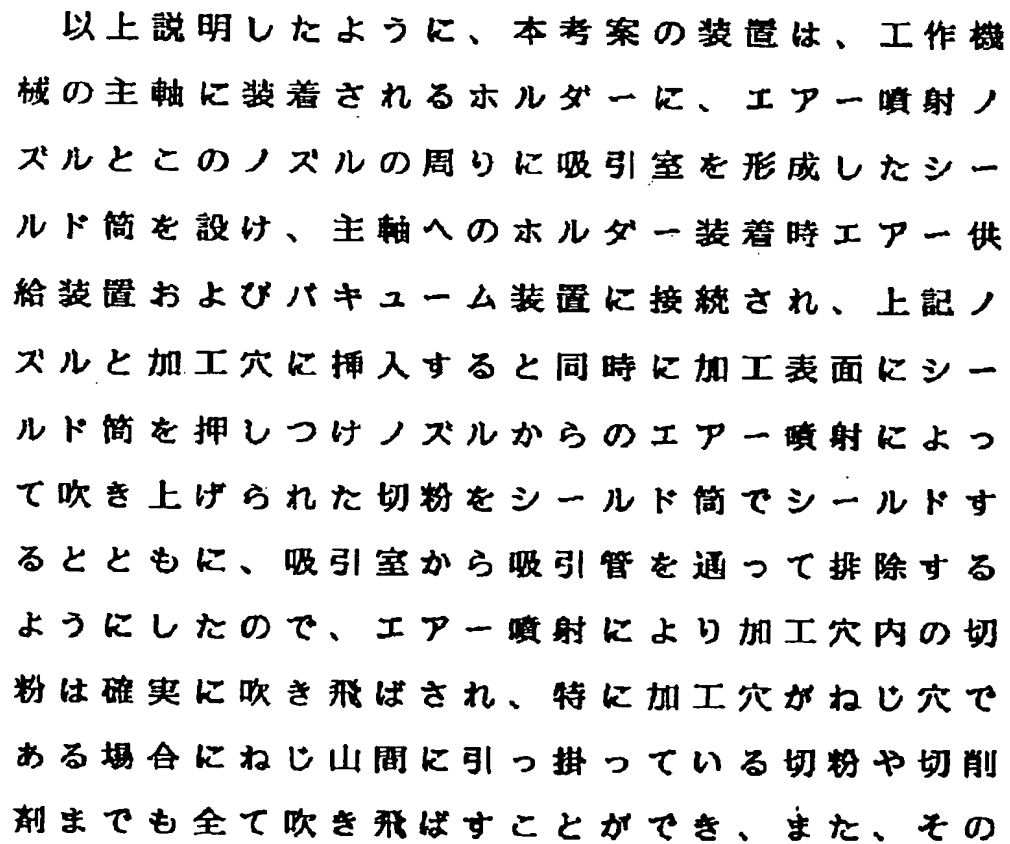 以上説明したように、本考案の装置は、工作機
械の主軸に装着されるホルダーに、エアー噴射ノ
ズルとこのノズルの周りに吸引室を形成したシー
ルド筒を設け、主軸へのホルダー装着時エアー供
給装置およびバキューム装置に接続され、上記ノ
ズルと加工穴に挿入すると同時に加工表面にシー
ルド筒を押しつけノズルからのエアー噴射によっ
て吹き上げられた切粉をシールド筒でシールドす
るとともに、吸引室から吸引管を通って排除する
ようにしたので、エアー噴射により加工穴内の切
粉は確実に吹き飛ばされ、特に加工穴がねじ穴で
ある場合にねじ山間に引っ掛っている切粉や切削
剤までも全て吹き飛ばすことができ、また、その